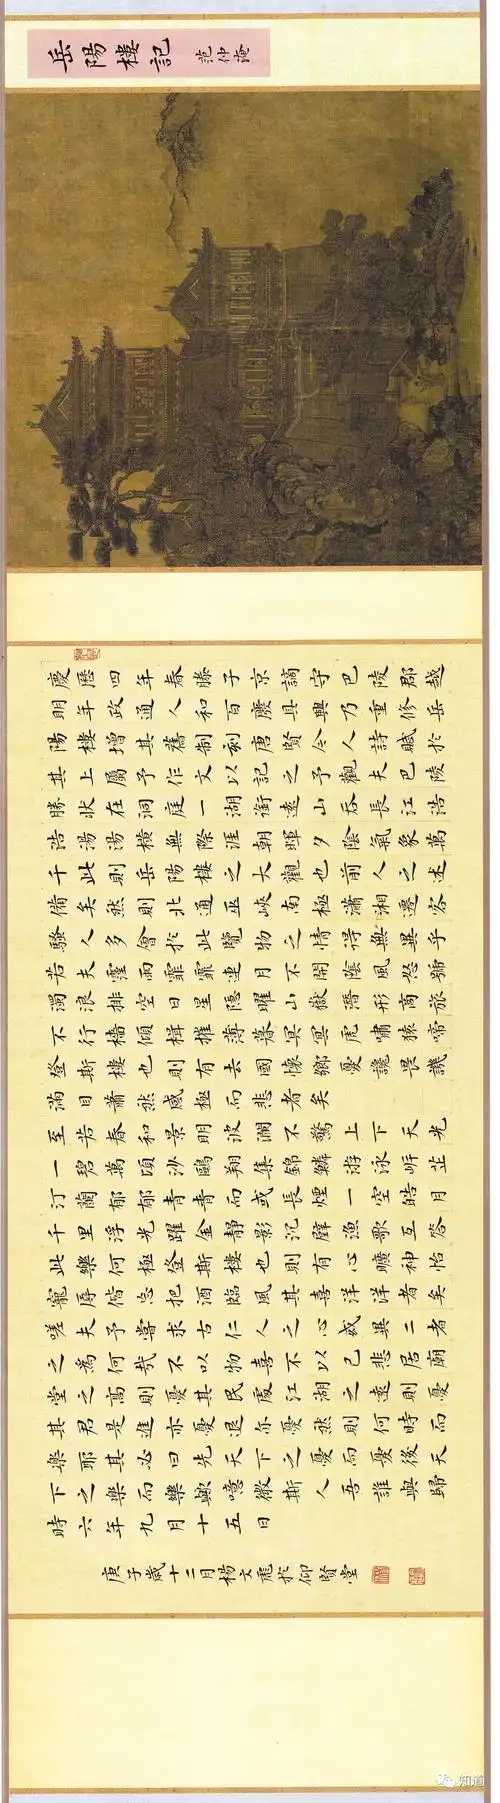 岳陽樓記
范仲淹
慶歷四年春滕子京謫守巴陵郡越
明年政通人和百廢具興乃重修岳
陽樓增其舊制刻唐賢今人詩賦於
其上屬予作文以記之予觀夫巴陵
勝狀在洞庭一湖銜遠山吞長江浩
浩湯湯橫無際涯朝暉夕陰氣象萬
千此則岳陽樓之大觀也前人之述
備矣然則北通巫峽南極瀟湘遷客
騷人多會於此覽物之情得無異乎
若夫霪雨霏霏連月不開陰風怒號
濁浪排空日星隱曜山嶽潛形商旅
不行檣傾楫摧薄暮冥冥虎嘯猿啼
登斯樓也則有去國懷鄉憂讒畏譏
滿目蕭然感極而悲者矣
至若春和景明波瀾不驚上下天光
一碧萬頃沙鷗翔集錦鱗游泳岸芷
汀蘭郁郁青青而或長煙一空皓月
千里浮光躍金靜影沉璧漁歌互答
此樂何極登斯樓也則有心曠神怡
寵辱偕忘把酒臨風其喜洋洋者矣
嗟夫予嘗求古仁人之心或異二者
之為何哉不以物喜不以己悲居廟
堂之高則憂其民處江湖之遠則憂
其君是進亦憂退亦憂然則何時而
樂耶其必曰先天下之憂而憂後天
下之樂而樂歟噫微斯人吾誰與歸
時六年九月十五日
庚子歲十二月楊文於仰賢堂
知道